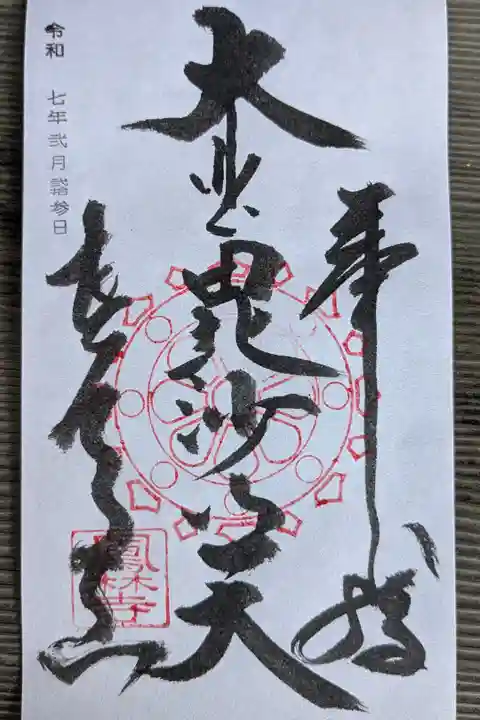 奉拝
大悲毘沙門天
令和 七年弐月弐拾参日
鳳林寺